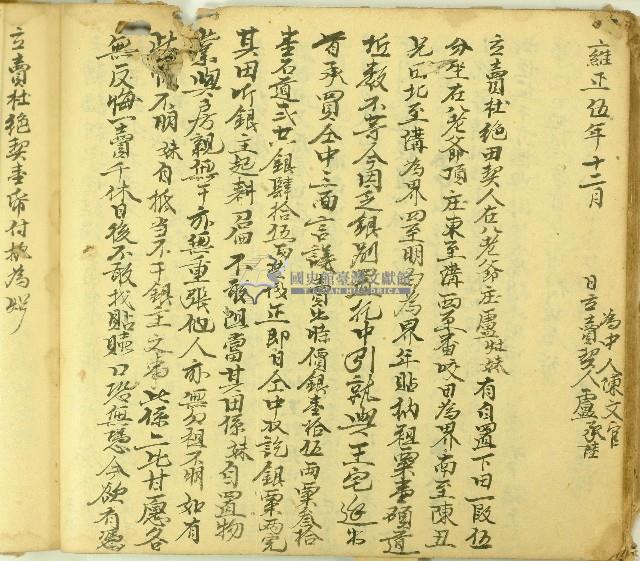 雍正伍年十二月
為中人陳文官
日立賣契人盧承陞
立賣杜絕田契人在八老爺庄盧雌妹有自置下田一段伍
分坐在八老爺頂庄東至溝西至番咬田為界南至陳丑
兄田北至溝為界四至明為界年貼納租粟壹碩道
斗數不等今因乏銀別置托中引就與王宅進出
首承買仝中三面言議時價銀壹拾伍兩粟叁拾
壹石道弍共銀肆拾伍兩正即日仝中收訖銀粟兩完
其田听銀主起耕召佃不敢阻當其田係妹自置物
業與房親無干亦無重張他人亦無勾租不明如有
不明妹自抵當不干銀主之事此係二比甘愿各
無反悔一賣千休日後不敢找貼贖口恐無憑今欲有憑
立賣杜絕契壹帋付執為炤
國史館臺灣文獻館
TAIWAN HISTORICA